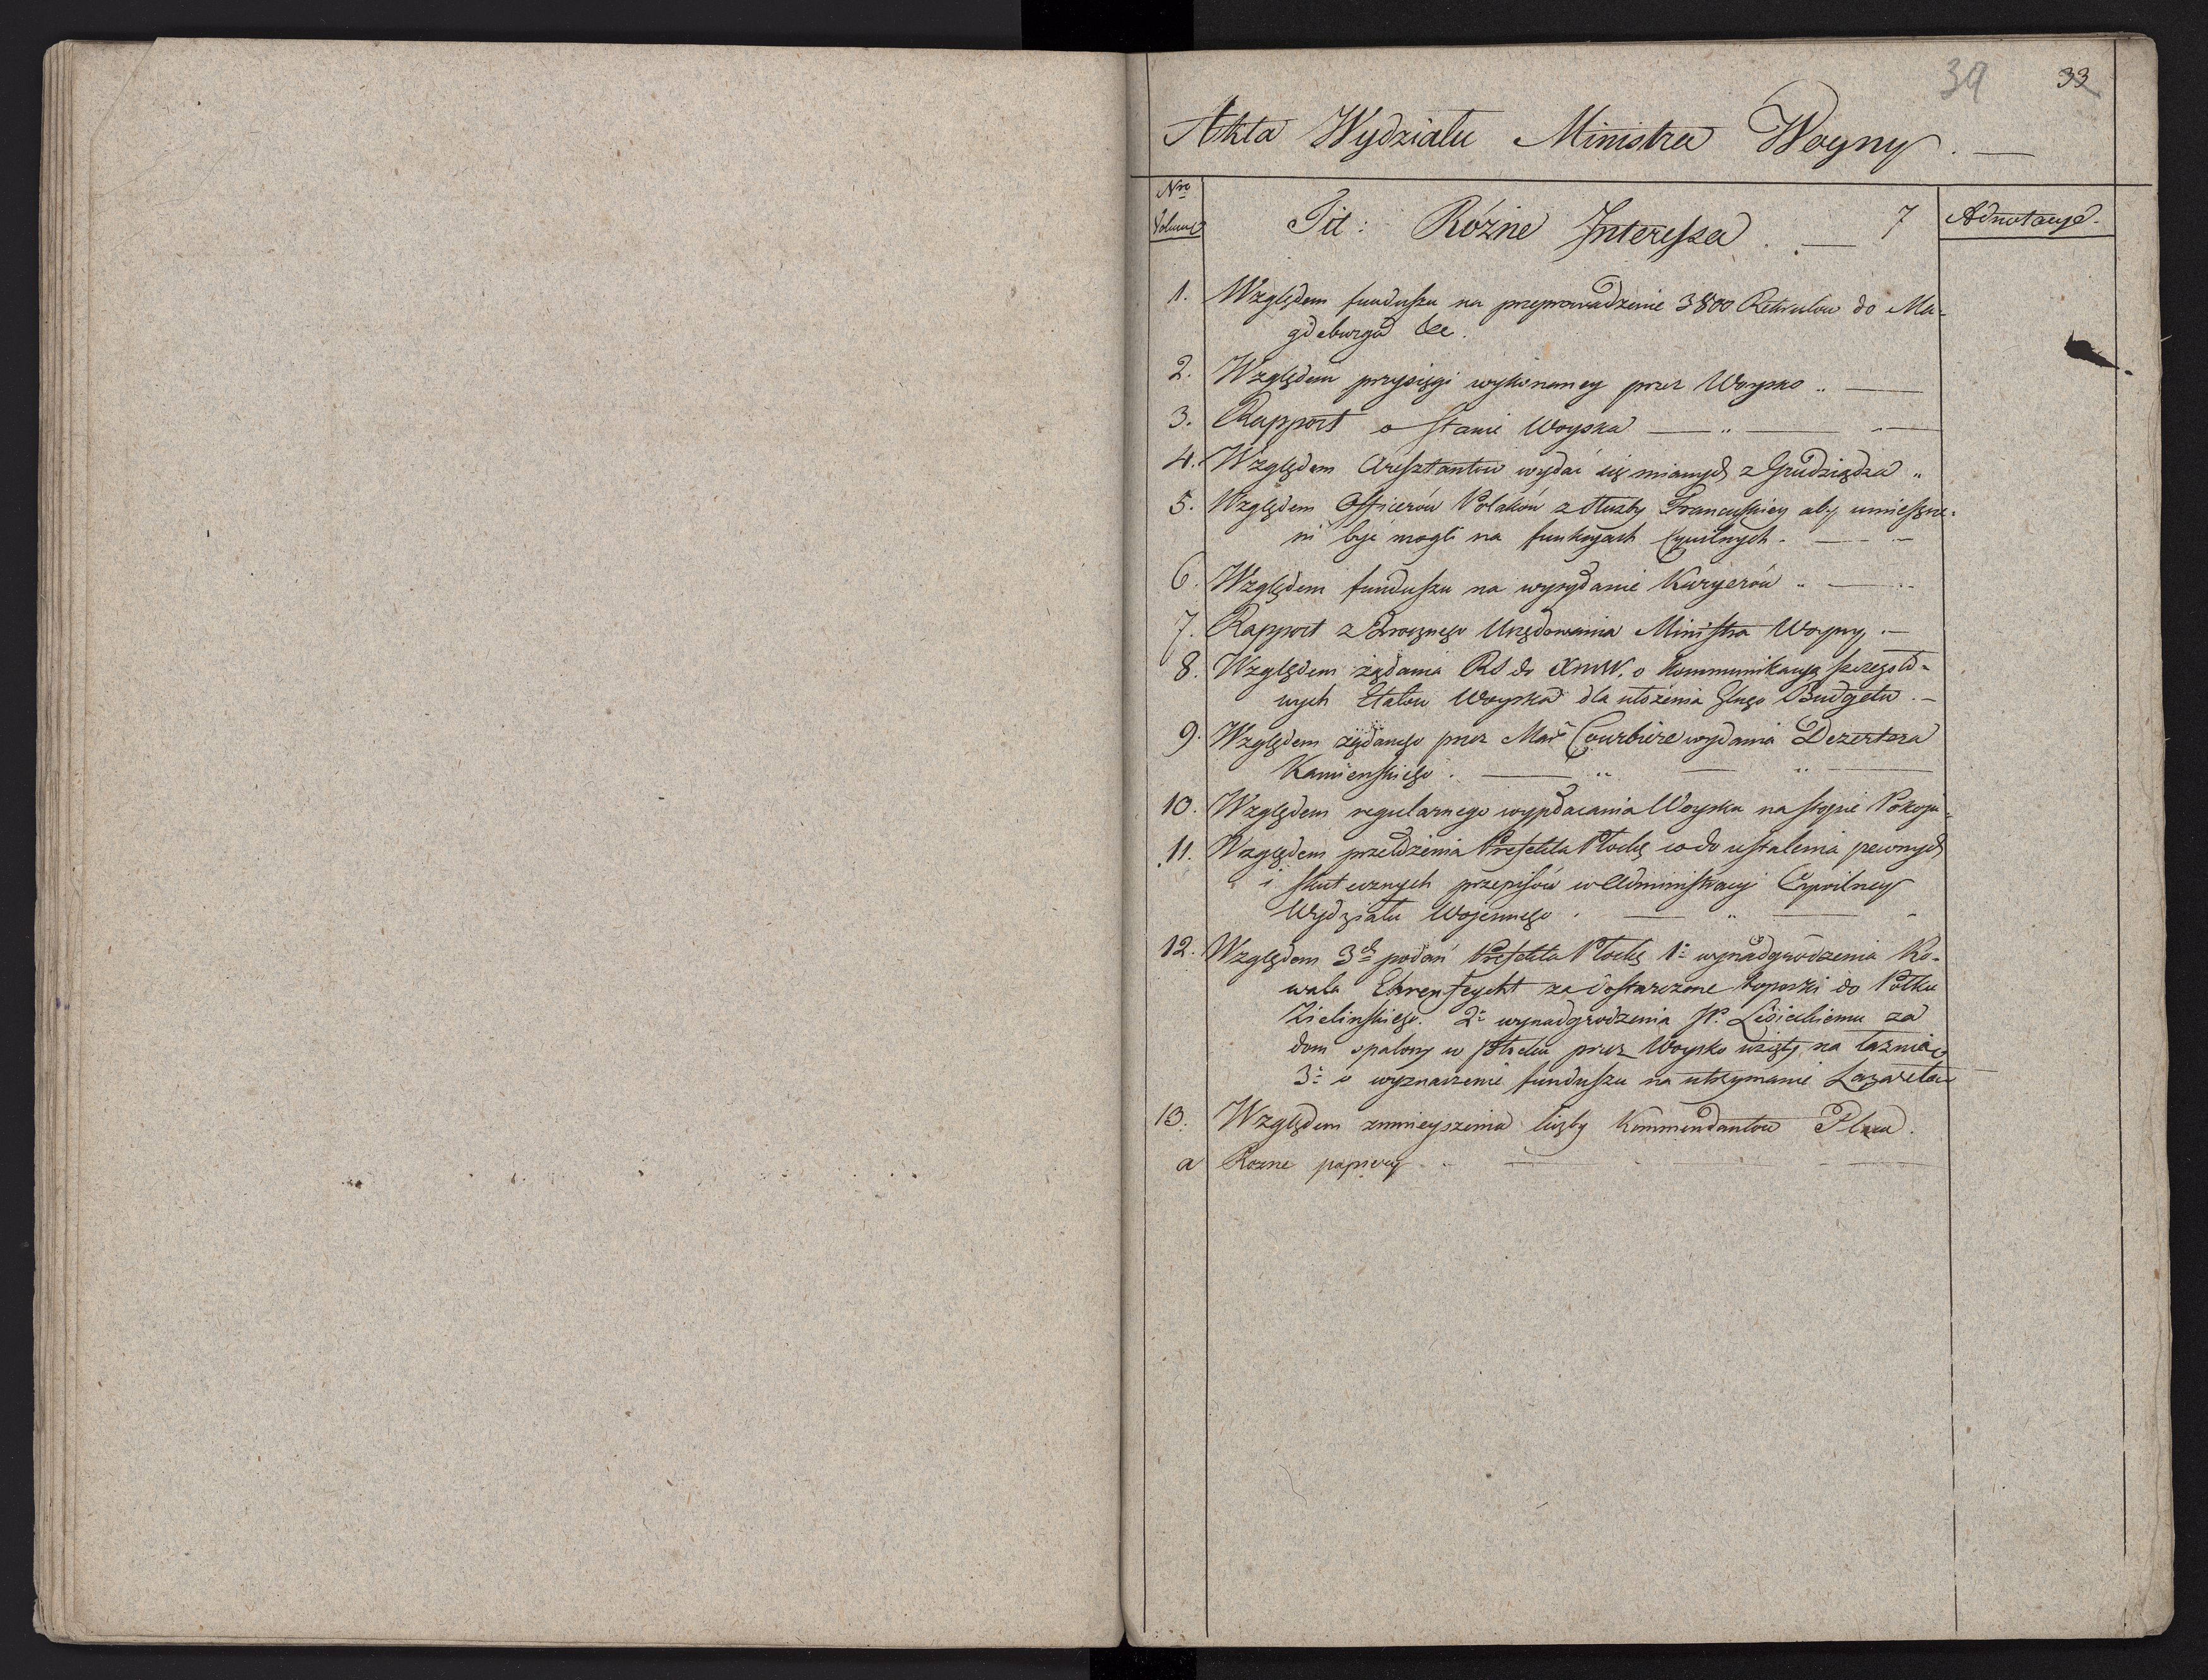 39 33
Akta Wydziału Ministra Woyny. —
Nro
Volumę
Tit: Rózne Interessa. — 7
Adnotacye.
1. Względem funduszu na przeprowadzenie 3800 Rekrutow do Ma-
gdeburga &c.
2. Względem przysięgi wykonaney przez Woysko „ —
3. Rapport o stanie Woyska — „ —
4. Względem Aresztantow wydać się mianych z Grudziądza „
5. Względem Officerów Polaków z służby Francuskiey aby umieszcze-
ni być mogli na funkcyach Cywilnych. —
6. Względem funduszu na wysyłanie Kuryerów „ —
7. Rapport z 2 rocznego Urzędowania Ministra Woyny. —
8. Względem żądania RS do XMW. o kommunikacyą szczegóło-
wych Etatow Woyska dla ułożenia Budgetu. —
9. Względem żądanego przez Courbiere wydania Dezertera
Kamienskiego. — „ — „ —
10. Względem regularnego wypłacania Woysku na stopie Pokoju.
11. Względem przełożenia Prefekta Płockę co do ustalenia pewnych
i skutecznych przepisów w Administracyi Cywilney
Wydziału Wojennego. — „ —
12. Względem 3ch podań Prefekta Płockę 1o wynadgrodzenia Ko-
wala Ehrenfeycht za dostarczone toporki do Półku
Zielinskiego. 2o wynadgrodzenia za
dom spalony w Płocku przez Woysko wzięty na łaznię
3o o wyznaczenie funduszu na utrzymanie Lazaretow
13. Względem zmnieyszenia liczby Kommendantow Placu.
a Rozne papiery — „ —